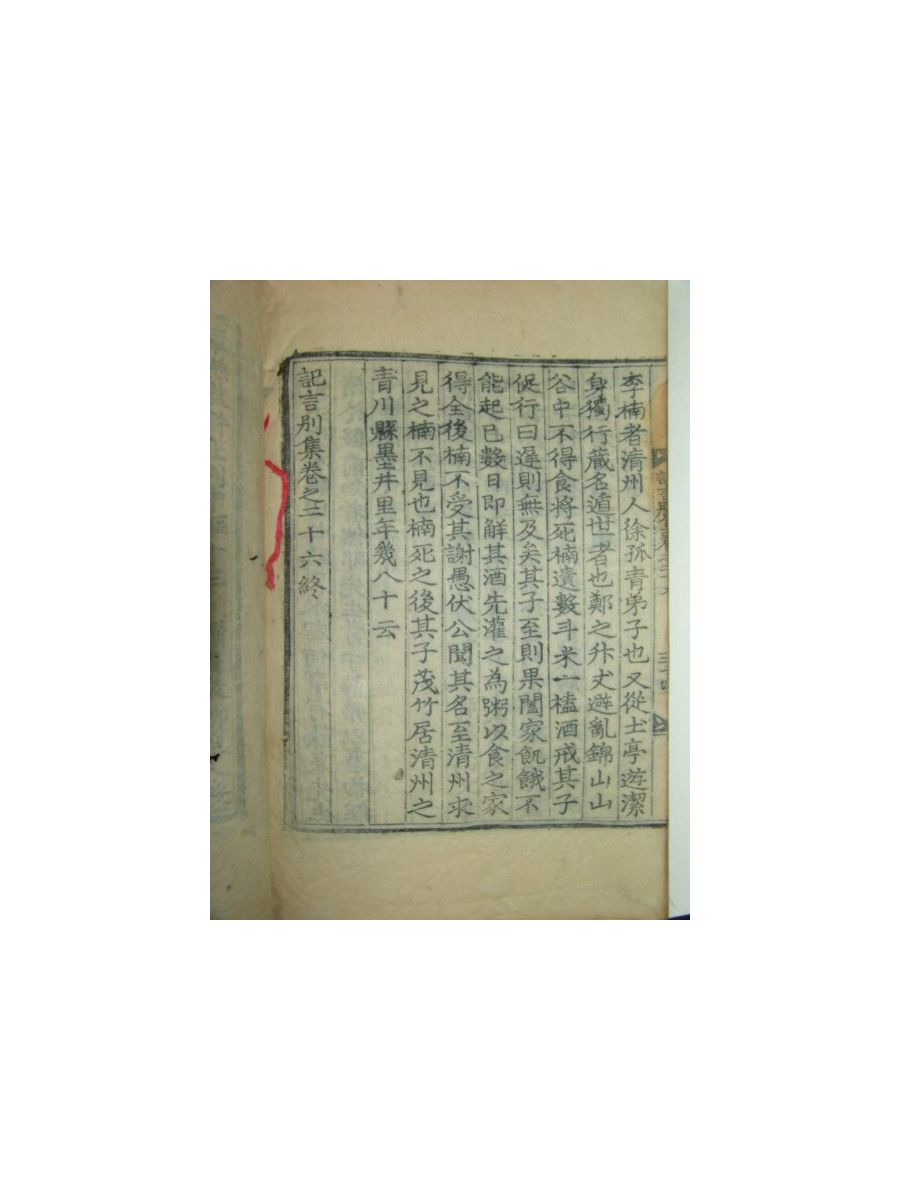 李楠者淸州人徐孤靑弟子也又從土亭遊潔
身獨行藏名遁世者也鄭之升丈避亂錦山山
谷中不得食將死楠遺數斗米一榼酒戒其子
促行曰遅則無及矣其子至則果闔家飢餓不
能起已數日即觧其酒先灌之為粥以食之家
得全後楠不受其謝愚伏公聞其名至淸州求
見之楠不見也楠死之後其子茂竹居淸州之
靑川縣墨井里年幾八十云
記言別集卷之三十六終